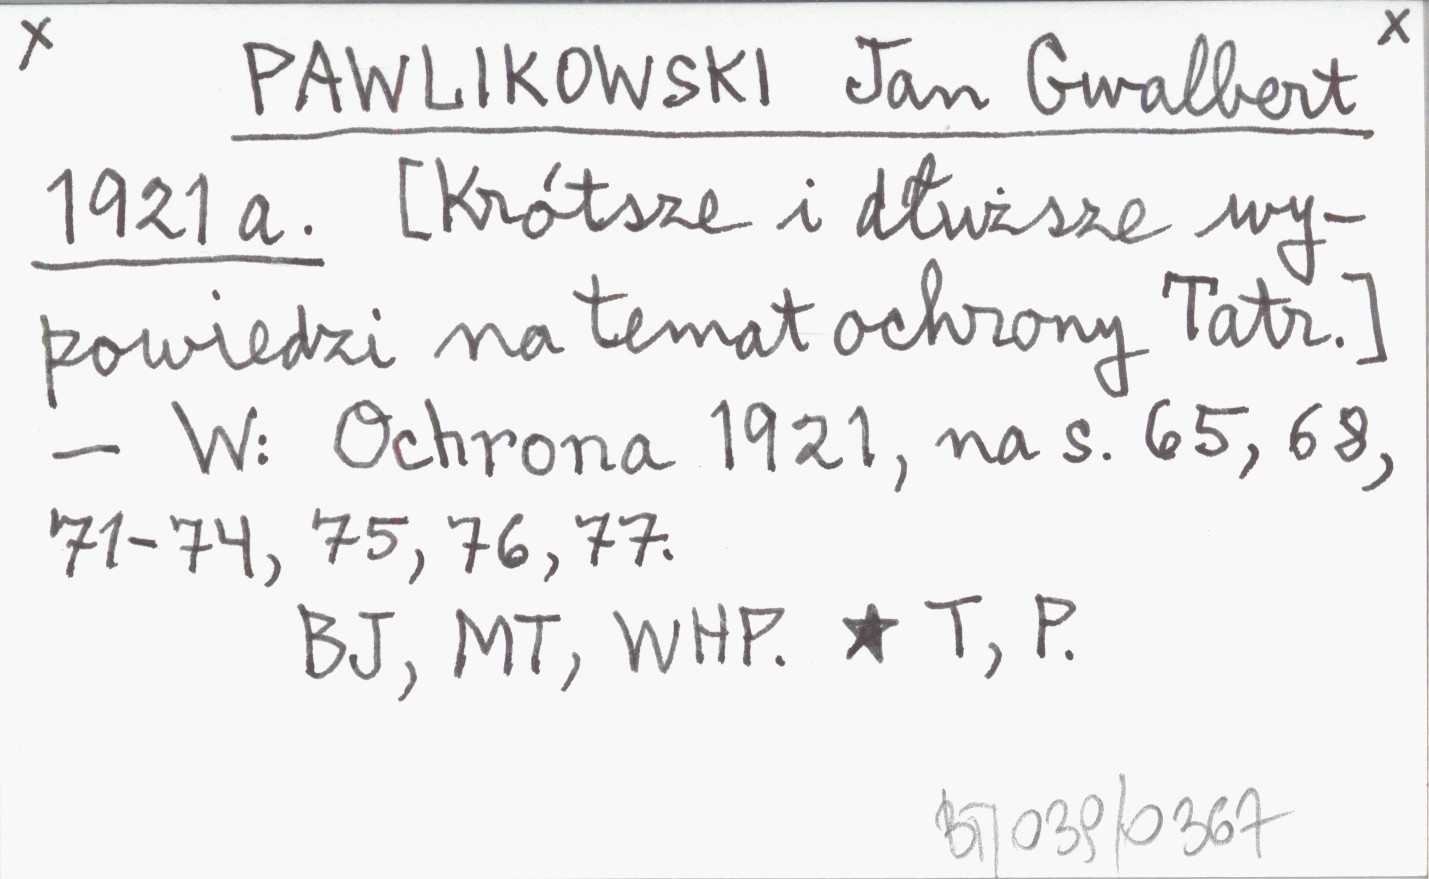 x x
PAWLIKOWSKI Jan Gwalbert
1921a. [Krótsze i dłuższe wy-
powiedzi na temat ochrony Tatr.]
— W: Ochrona 1921, na s. 65, 68,
71-74, 75, 76, 77.
BJ, MT, WHP. ★ T, P.
BT/039/0367